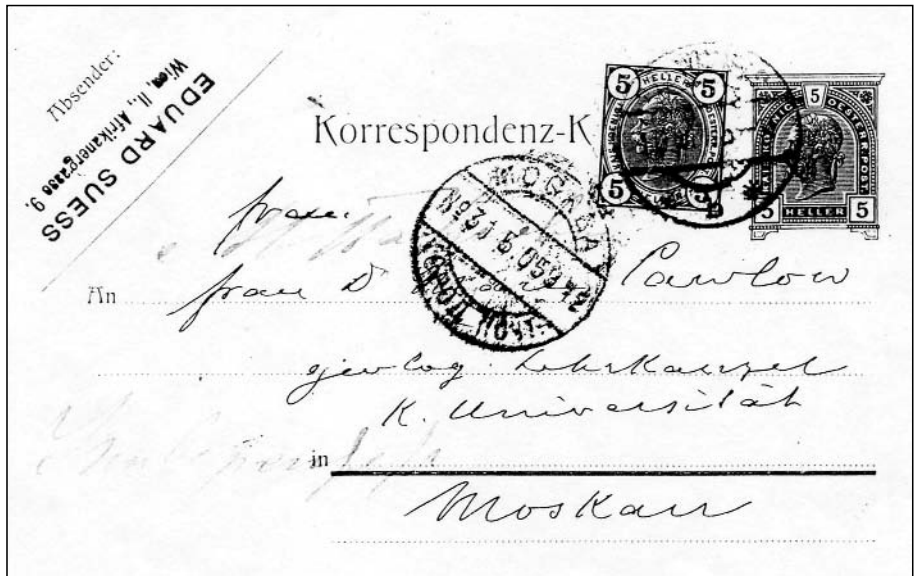 Absender:
EDUARD SUESS
Wien, II., Afrikanergasse 9.
Korrespondenz-K
5 HELLER 5
5 5
5
KAIS. KOENIGL. OESTERR. POST
5 HELLER 5
МОСКВА
31.5.05
ПОЧТ.
frau
An frau D Pawlow
geolog. Lehrkanzel
K. Universität
in
Moskau